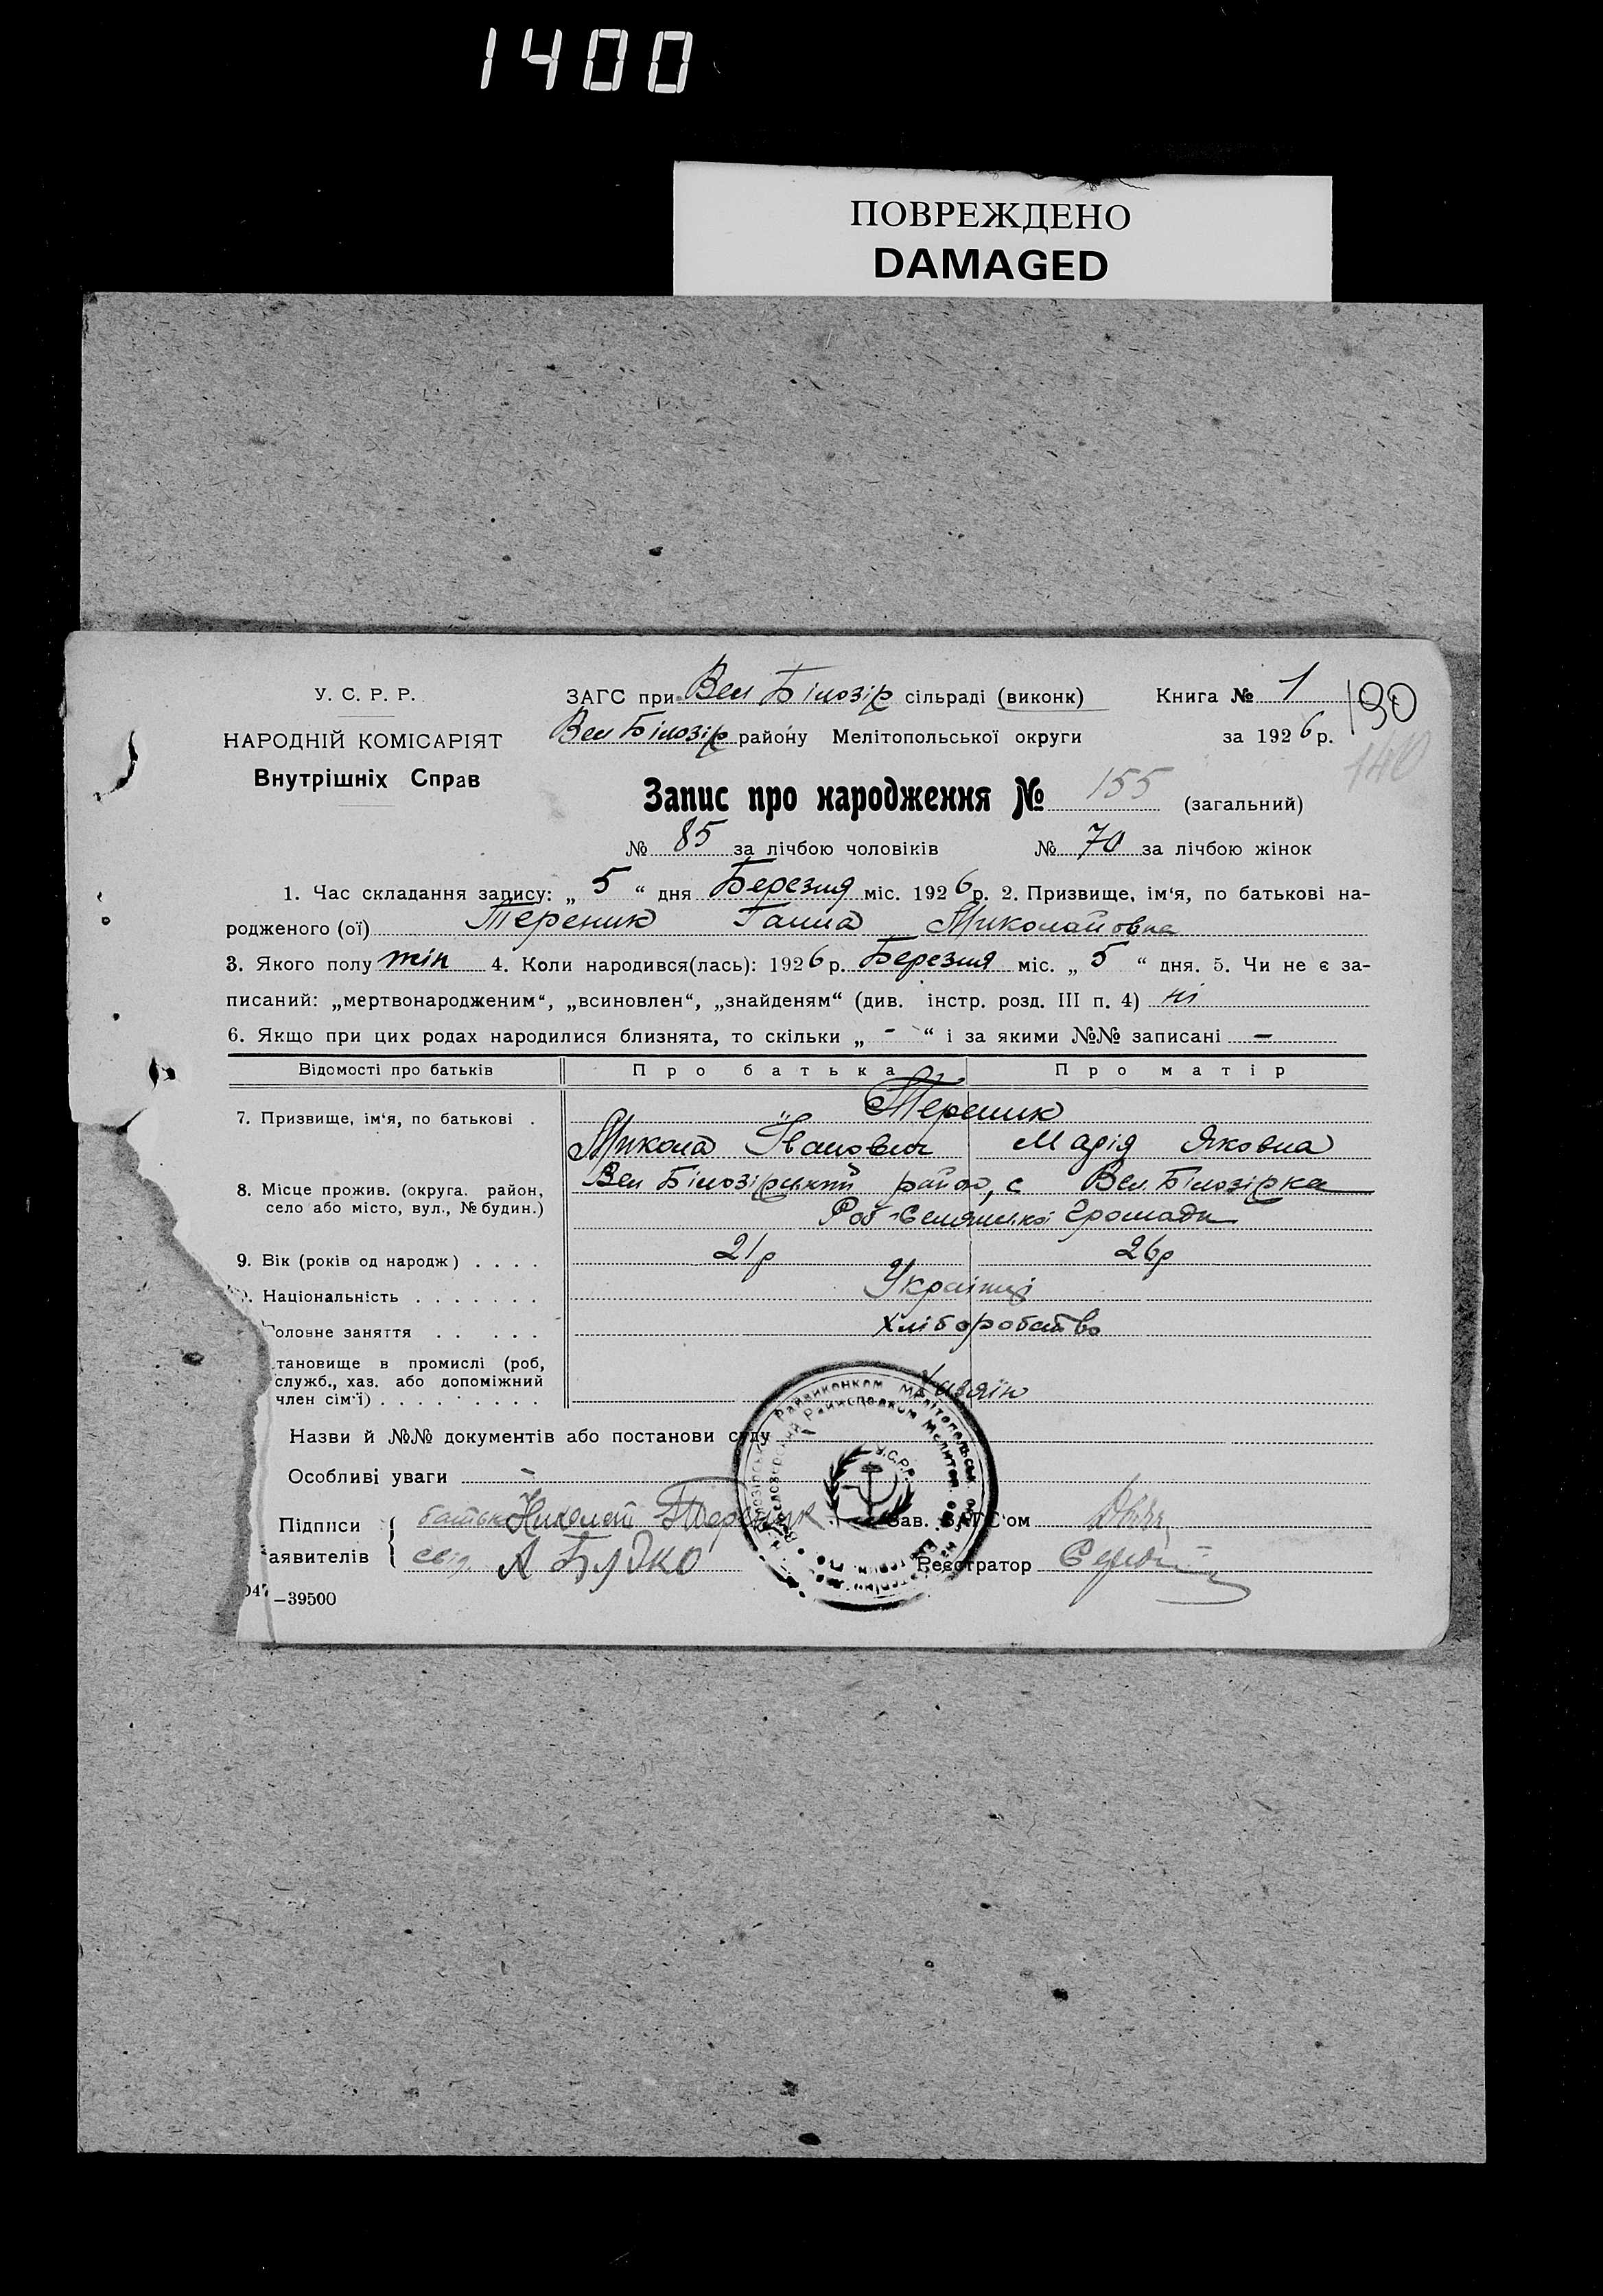 1400
ПОВРЕЖДЕНО
DAMAGED
У. С. Р. Р.
НАРОДНІЙ КОМІСАРІЯТ
Внутрішніх Справ
ЗАГС при Вел Білозір сільраді (виконк) Книга № 1
190
Вел Білозір району Мелітопольської округи за 1926 р.
140
Запис про народження № 155 (загальний)
№ 85 за лічбою чоловіків № 70 за лічбою жінок
1. Час складання запису: „ 5 “ дня Березня міс. 1926 р. 2. Призвище, ім‘я, по батькові на-
родженого (ої) Тереник Ганна Миколайовна
3. Якого полу жін 4. Коли народився(лась): 1926 р. Березня міс. „ 5 “ дня. 5. Чи не є за-
писаний: „мертвонародженим“, „всиновлен“, „знайденям“ (див. інстр. розд. III п. 4) ні
6. Якщо при цих родах народилися близнята, то скільки „ - “ і за якими №№ записані —
Відомості про батьків Про батька Про матір
7. Призвище, ім‘я, по батькові . Тереник
Микола Іванович Марія Яковна
8. Місце прожив. (округа. район,
село або місто, вул., № будин.)
Вел Білозірський район, с Вел. Білозірка
Роб-Селянської Громади
9. Вік (років од народж) . . . . 21р 26р
. Національність . . . . . . . Українці
оловне заняття . . . . . Хліборобство
тановище в промислі (роб,
служб., хаз. або допоміжний
член сім‘ї) . . . . . . . . . Хазяїн
Назви й №№ документів або постанови суду
Особливі уваги —
Підписи батько Николай Тереник Зав. ЗАГС‘ом
аявителів свід. А Будко Реєстратор
—39500
У.С.Р.Р.